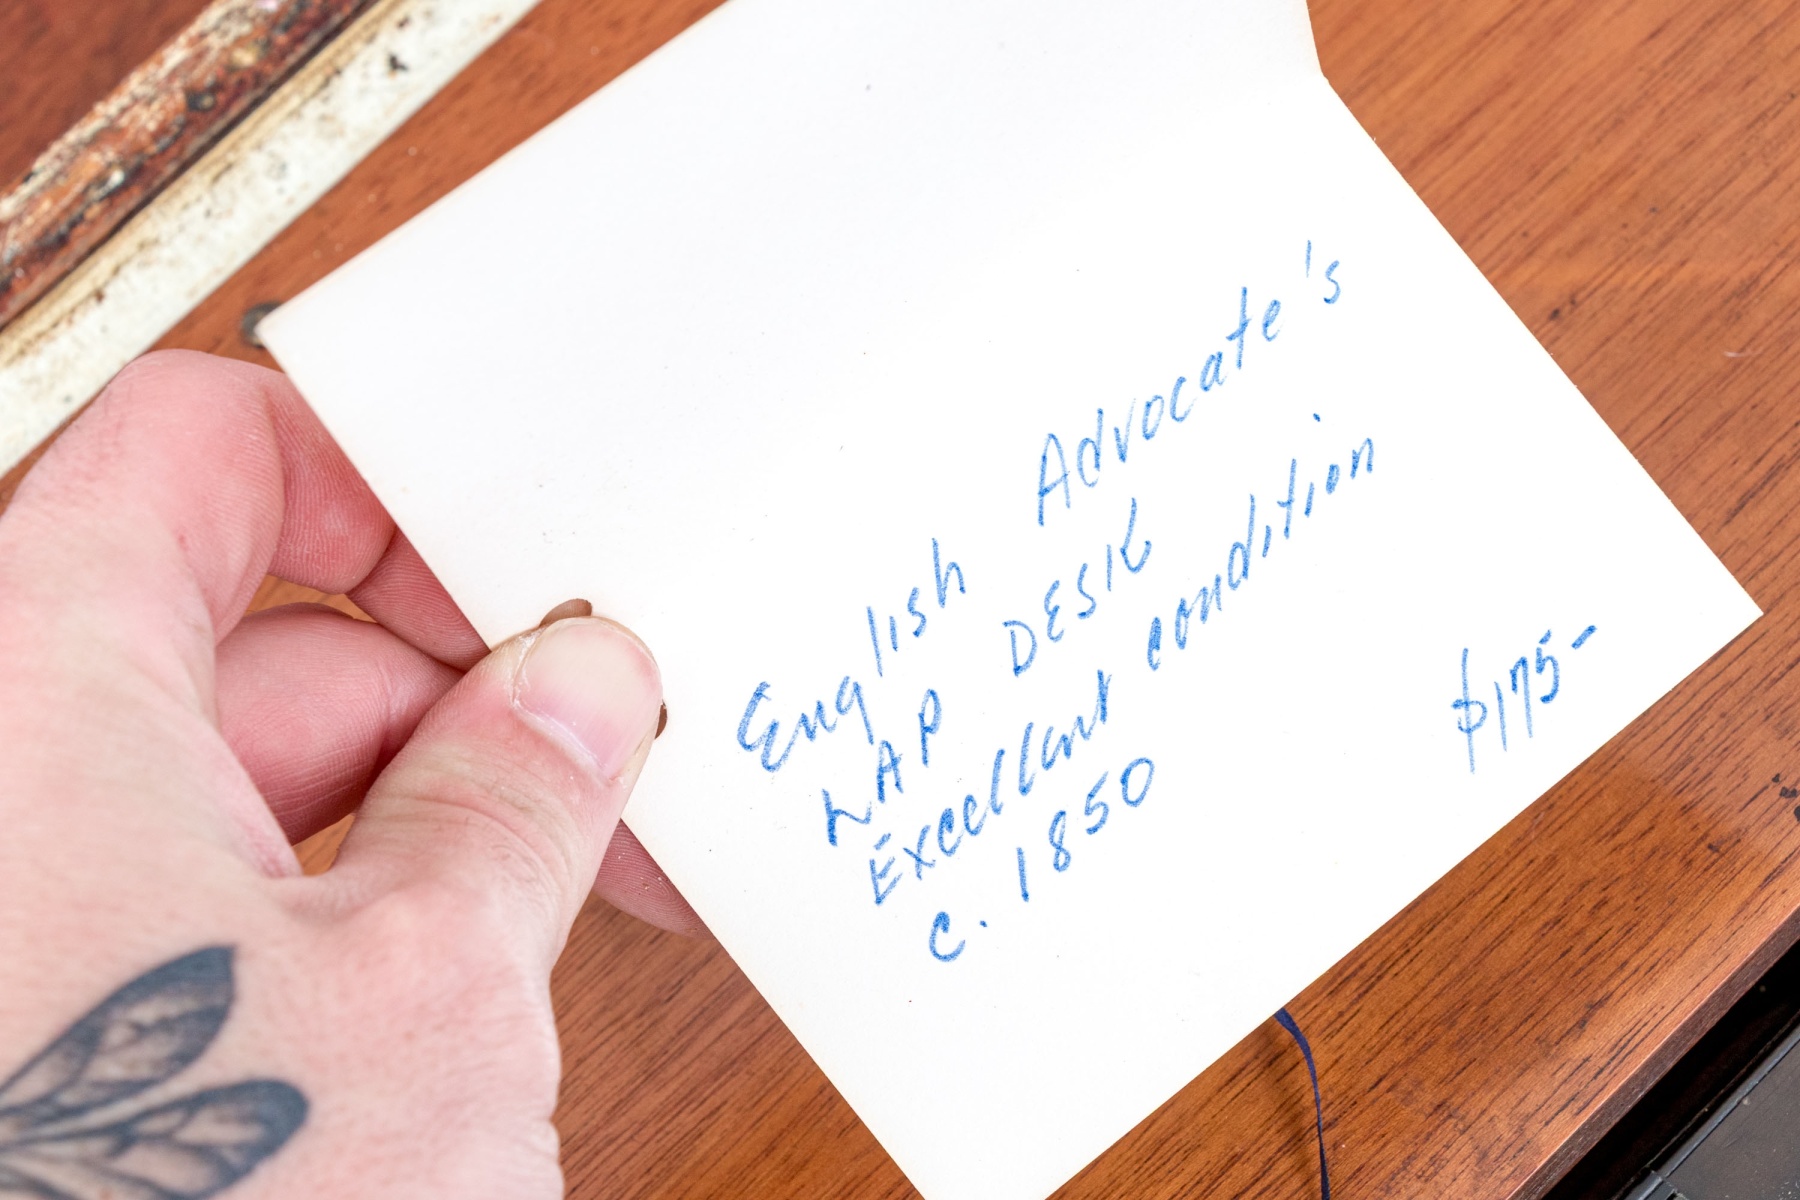 English Advocate's
LAP DESK
Excellent condition
c. 1850
$175-